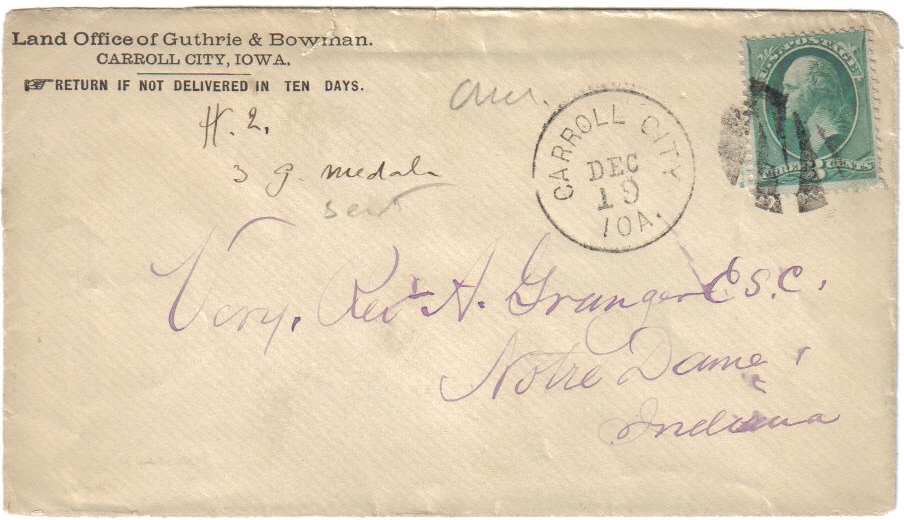 Land Office of Guthrie & Bowman.
CARROLL CITY, IOWA.
RETURN IF NOT DELIVERED IN TEN DAYS.
H. 2,
3 g. medals
sent
CARROLL CITY
DEC
19
IOA.
U.S. POSTAGE
THREE 3 CENTS
Very. Rev. A. Granger C S. C.
Notre Dame,
Indiana